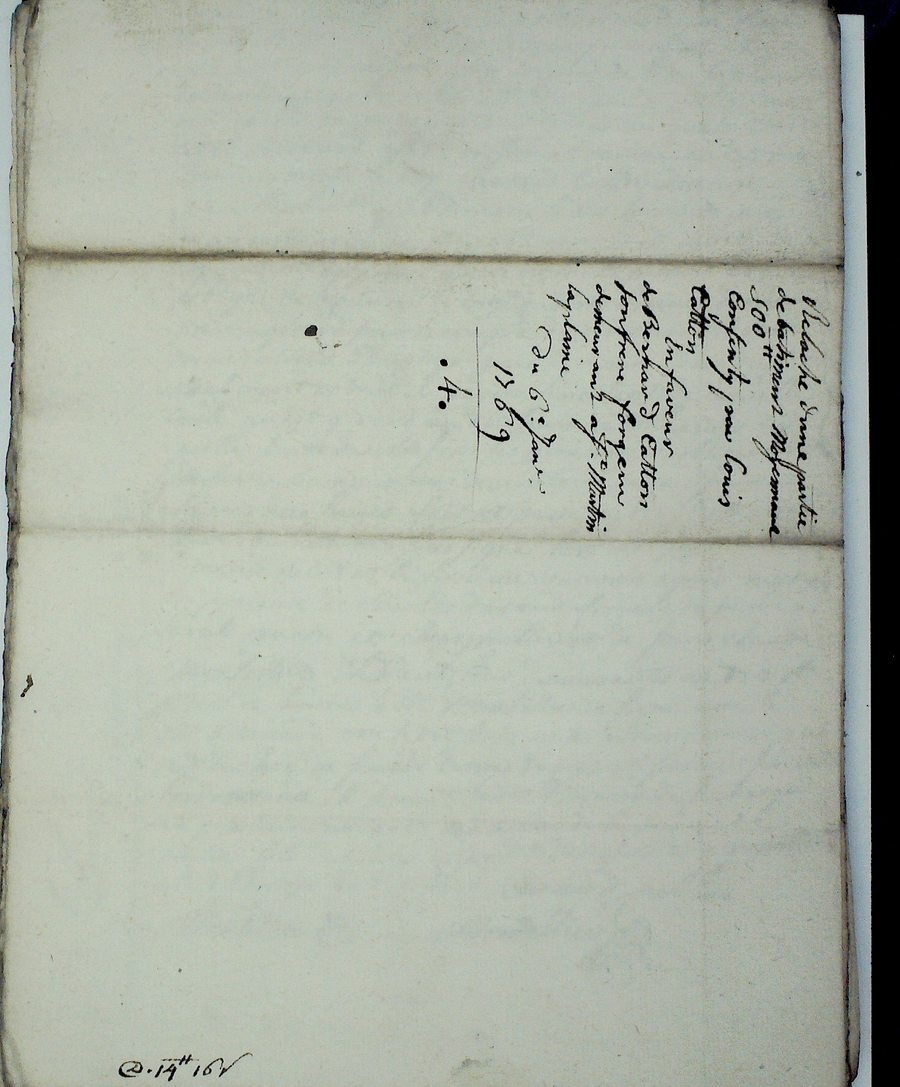 Relache dune partie
de batiment Moyennant
500 ₶
Consenty par Louis
Catton
En faveur
de Bernard Catton
son frere forgeur
demeurant a St. Martin
la plaine
Du 6e. Janv.
1769
.4.
14₶ 16